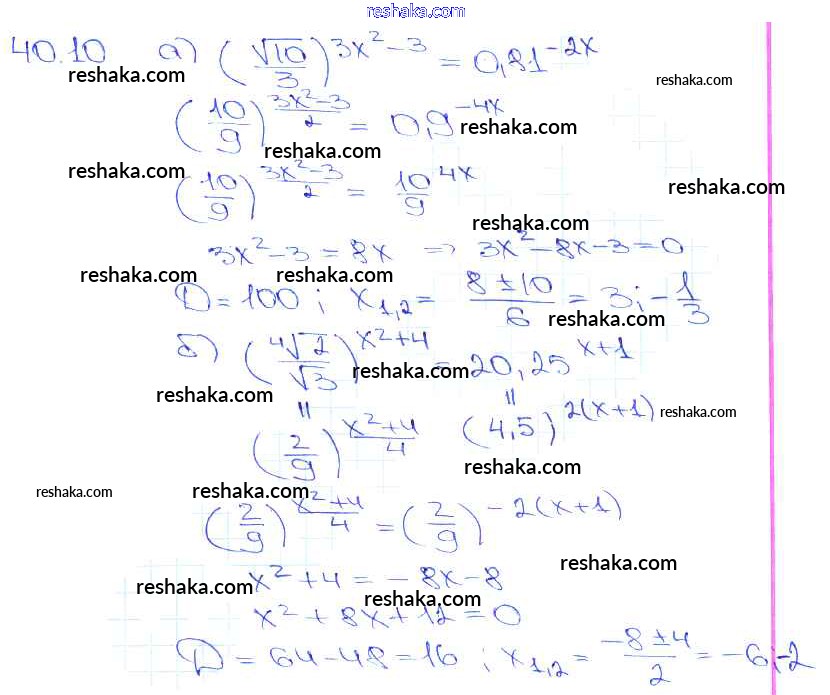 reshaka.com
40.10 а) (√10/3)^(3x²-3) = 0,81^(-2x)
reshaka.com reshaka.com reshaka.com
(10/9)^((3x²-3)/2) = 0,9^(-4x)
reshaka.com reshaka.com
(10/9)^((3x²-3)/2) = 10/9^(4x)
reshaka.com reshaka.com reshaka.com
3x²-3=8x => 3x²-8x-3=0
reshaka.com reshaka.com reshaka.com
D=100; x₁,₂ = (8±10)/6 = 3; -1/3
reshaka.com
б) (⁴√2/√3)^(x²+4) = 20,25^(x+1)
reshaka.com reshaka.com
॥ ॥
(2/9)^((x²+4)/4) (4,5)^(2(x+1))
reshaka.com reshaka.com
reshaka.com reshaka.com
(2/9)^((x²+4)/4) = (2/9)^(-2(x+1))
reshaka.com
x²+4=-8x-8
reshaka.com reshaka.com
x²+8x+12=0
D=64-48=16; x₁,₂ = (-8±4)/2 = -6;-2